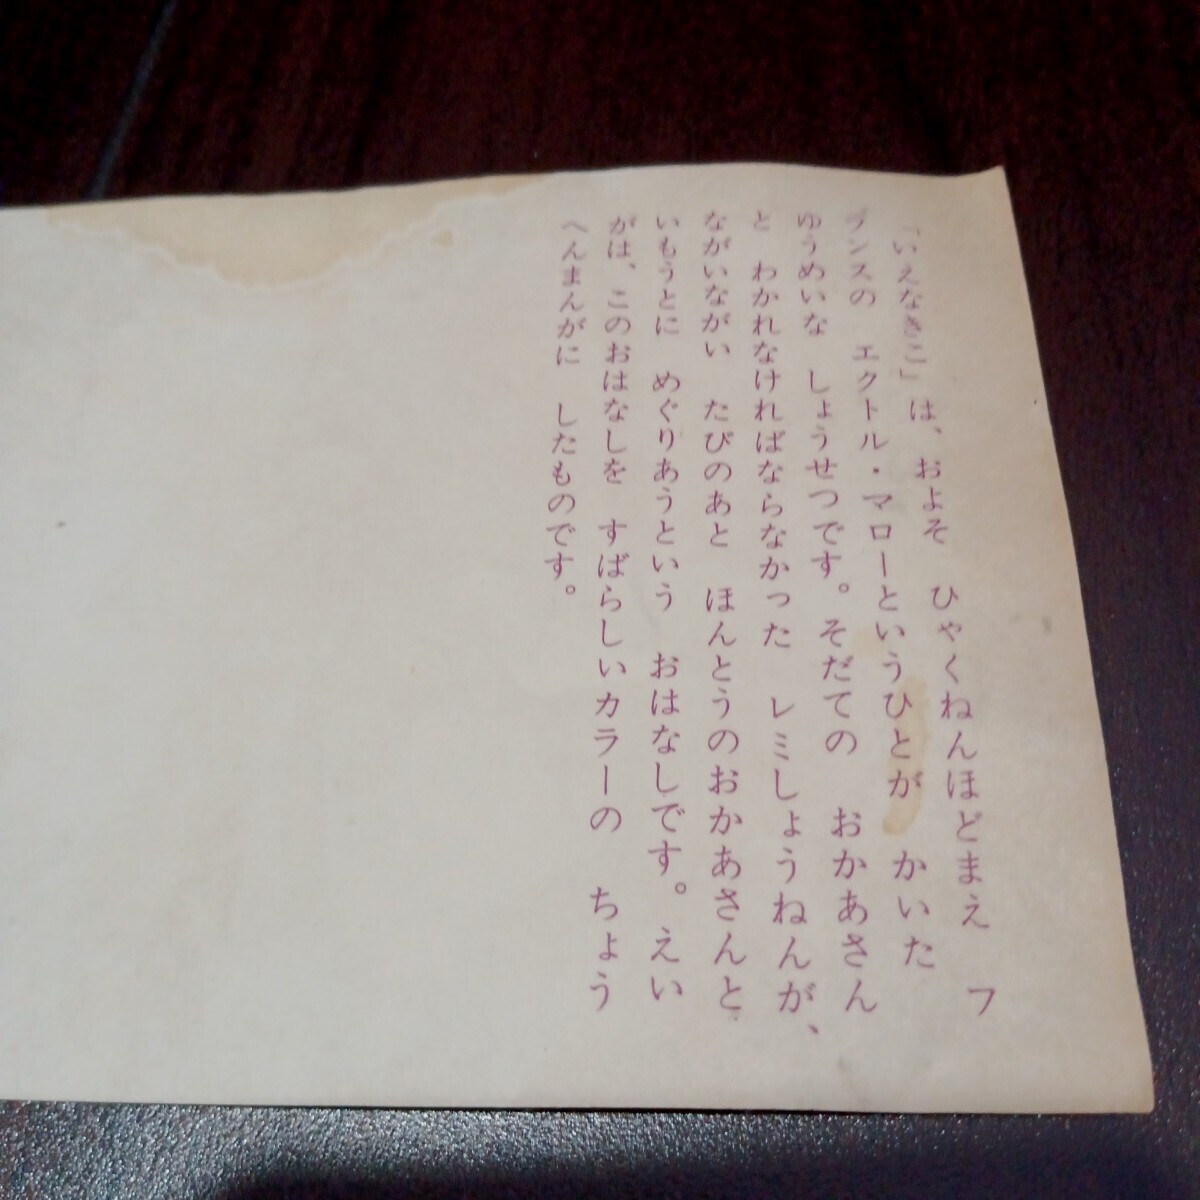 「いえなきこ」は、およそ　ひゃくねんほどまえ　フ
ランスの　エクトル・マローというひとが　かいた
ゆうめいな　しょうせつです。そだての　おかあさん
と　わかれなければならなかった　レミしょうねんが、
ながいながい　たびのあと　ほんとうのおかあさんと
いもうとに　めぐりあうという　おはなしです。えい
がは、このおはなしを　すばらしいカラーの　ちょう
へんまんがに　したものです。